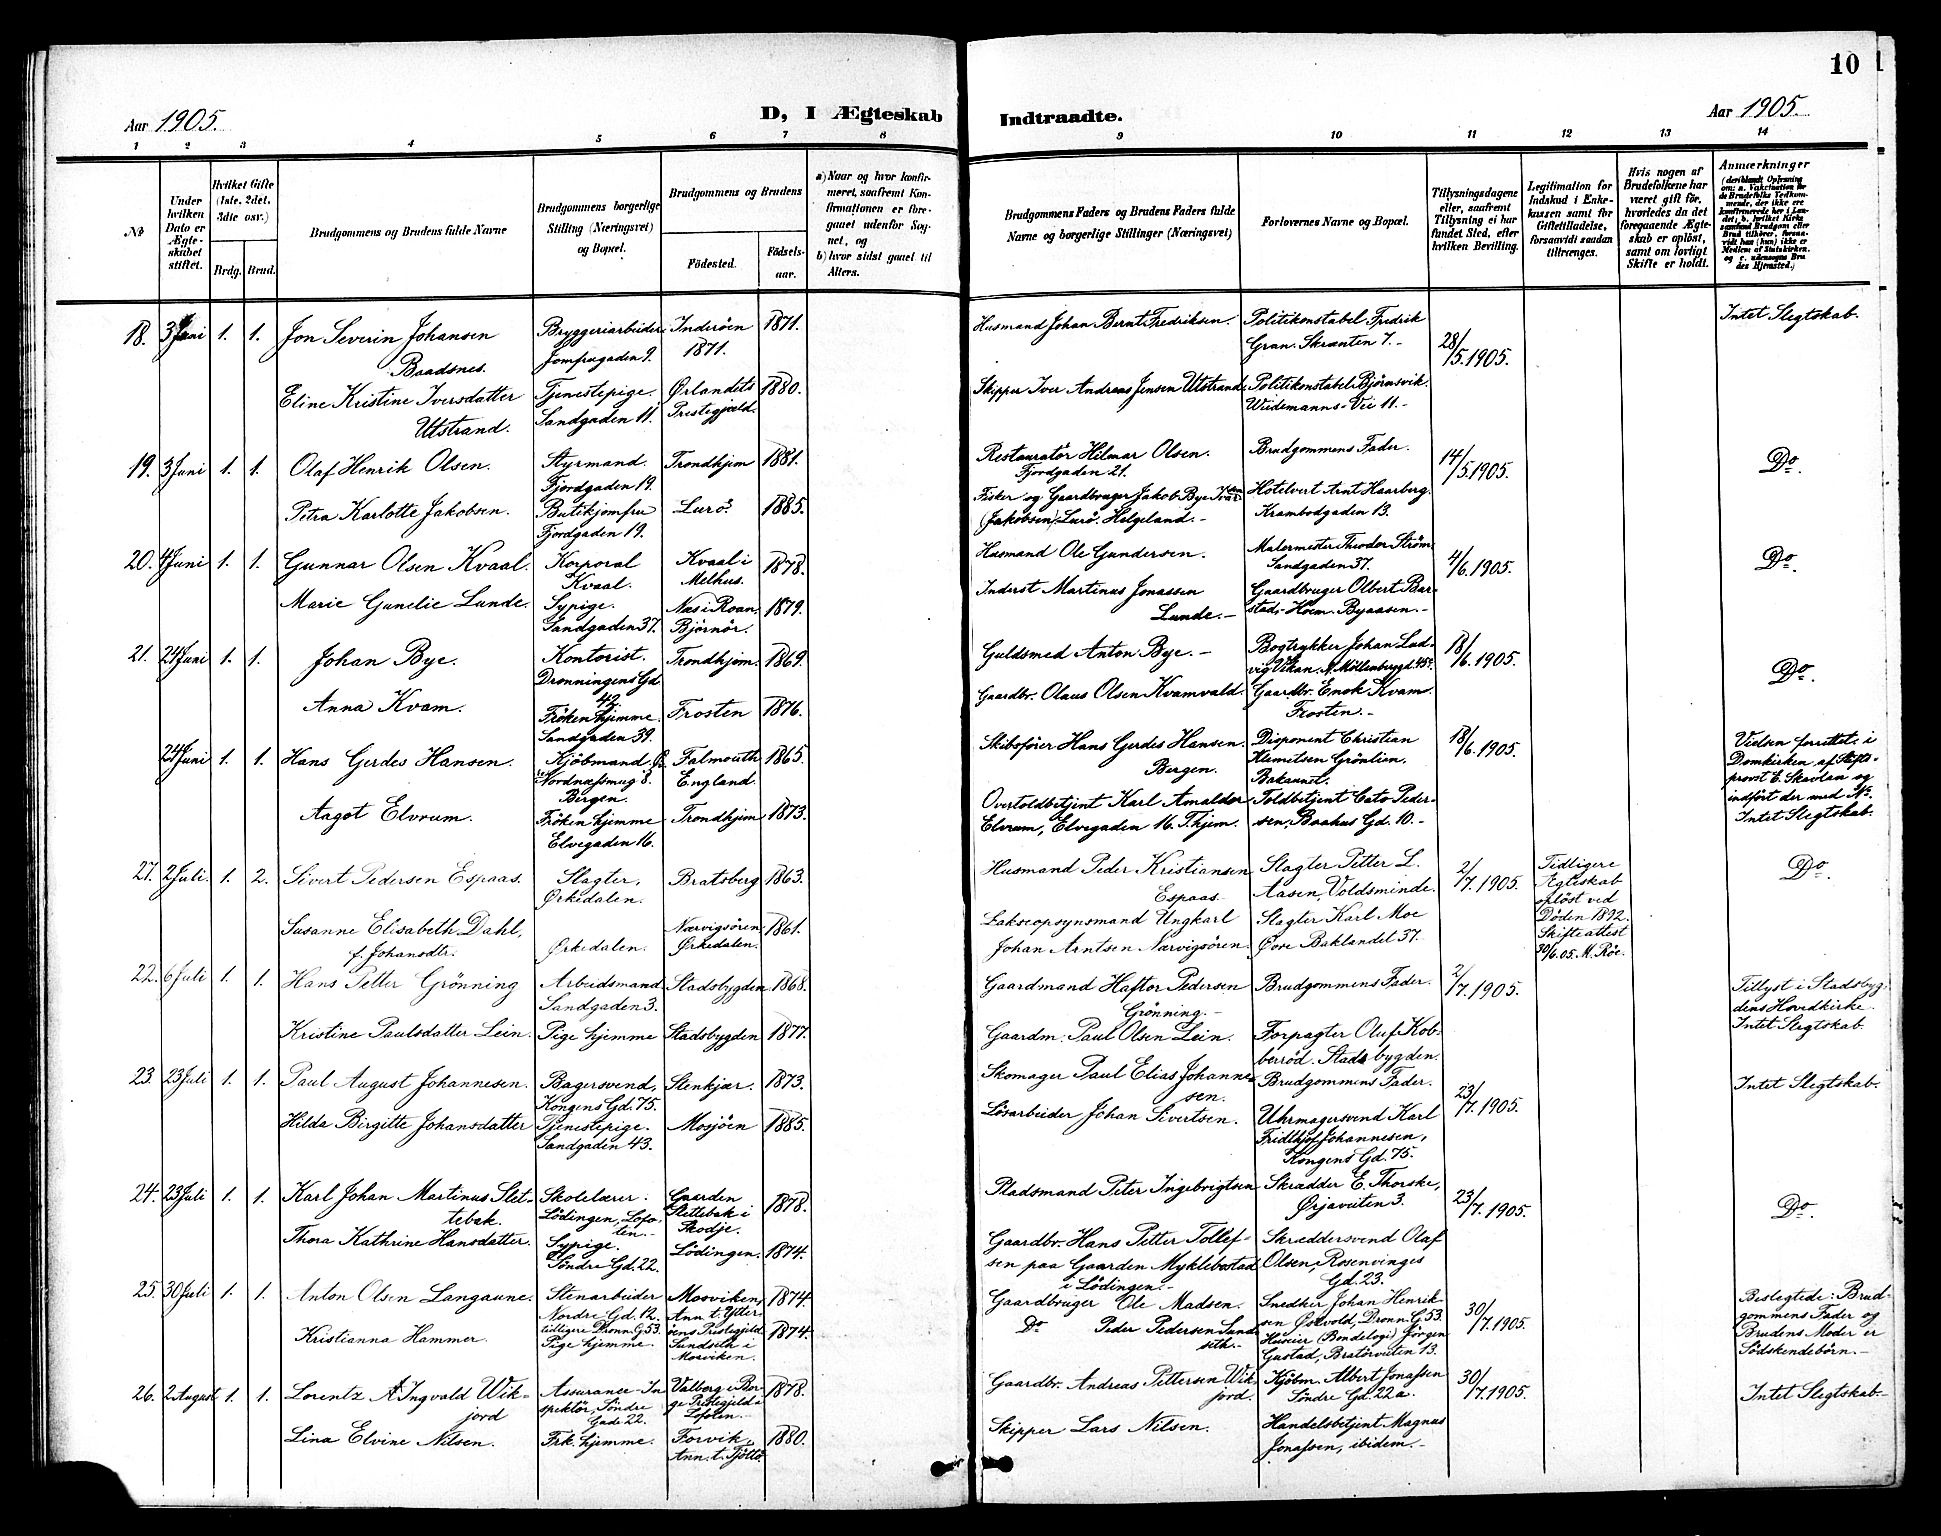 10
Aar 1905.
D, I Ægteskab Indtraadte.
Aar 1905.
1 2 3 4 5 6 7 8 9 10 11 12 13 14
No
Under hvilken Dato er Ægteskabet stiftet.
Hvilket Gifte (1ste, 2det, 3die osv.)
Brdg. Brud.
Brudgommens og Brudens fulde Navne
Brudgommens borgerlige Stilling (Næringsvei) og Bopæl.
Brudgommens og Brudens
Födested.
Födselsaar.
a) Naar og hvor konfirmeret, saafremt Konfirmationen er foregaaet udenfor Sognet, og
b) hvor sidst gaaet til Alters.
Brudgommens Faders og Brudens Faders fulde Navne og borgerlige Stillinger (Næringsvei)
Forlovernes Navne og Bopæl.
Tillysningsdagene eller, saafremt Tillysning ei har fundet Sted, efter hvilken Bevilling.
Legitimation for Indskud i Enkekassen samt for Giftetilladelse, forsaavidt saadan tiltrænges.
Hvis nogen af Brudefolkene har været gift för, hvorledes da det foregaaende Ægteskab er oplöst, samt om lovligt Skifte er holdt.
Anmærkninger
18. 3 Juni 1. 1. Jon Severin Johansen
Baadsnes.
Bryggeriarbeider
Jomfrugaden 9.
Inderöen
1871.
1871.
Husmand Johan Bernt Fredriksen.
Politikonstabel Fredrik
Gran. Skrænten 7.-
28/5.1905.
Intet Slegtskab.
Eline Kristine Iversdatter
Utstrand.
Tjenestepige.
Sandgaden 11.
Ørlandets
Prestegjæld.
1880.
Skipper Iver Andreas Jensen Utstrand.
Politikonstabel Björnsvik.
Wiedemanns-Vei 11.-
19. 3 Juni 1. 1. Olaf Henrik Olsen.
Styrmand.
Fjordgaden 19.
Trondhjem 1881.
Restauratör Hilmar Olsen.
Fjordgaden 21.
Brudgommens Fader.
14/5.1905.
Do.
Petra Karlotte Jakobsen.
Butikjomfru
Fjordgaden 19.
Lurö. 1885.
Fisker og Gaardbruger Jakob Bye
(Jakobsen) Lurö. Helgeland.-
Hotelvert Arnt Haarberg.
Krambodgaden 13.
20. 4 Juni 1. 1. Gunnar Olsen Kvaal.
Korporal
Kvaal.
Kvaal i
Melhus.
1878.
Husmand Ole Gundersen.
Malermester Theodor Ström.
Sandgaden 37.
4/6.1905.
Do.
Marie Gunelie Lunde.
Sypige.
Sandgaden 37.
Næs i Roan.
Björnör.
1879.
Inderst Martinus Jonassen
Lunde.-
Gaardbruger Olbert Bar-
stad-Hoem. Byaasen.-
21. 24 Juni 1. 1. Johan Bye.
Kontorist.
Dronningens Gd.
42.
Trondhjem. 1869.
Guldsmed Anton Bye.-
Bogtrykker Johan Lud-
vig Vikan. N. Möllenbergd. 45.
18/6.1905.
Do.
Anna Kvam.
Fröken hjemme.
Sandgaden 39.
Frosten 1876.
Gaardbr. Olaus Olsen Kvamvald.
Gaardbr. Enok Kvam.
Frosten.-
24 Juni 1. 1. Hans Gerdes Hansen.
Kjöbmand.
Nordnæssmug 8.
Bergen.
Falmouth
England.
1865.
Skibsförer Hans Gerdes Hansen.
Bergen.
Disponent Christian
Klemetsen Grönlien,
Bakaunet.
18/6.1905.
Vielsen forrettet i
Domkirken af Stifts-
provst E. Skavlan og
indfört der med No.
Intet Slegtskab.
Aagot Elvrum.
Fröken hjemme
Elvegaden 16.
Trondhjem 1873.
Overtoldbetjent Karl Amaldor
Elvrum, Elvegaden 16. T.hjem.
Toldbetjent Cato Peder-
sen, Baahus Gd. 10.-
27. 2 Juli. 1. 2. Sivert Pedersen Espaas.
Slagter,
Ørkedalen.
Bratsberg 1863.
Husmand Peder Kristiansen
Espaas.
Slagter Petter L.
Aasen, Voldsminde.
2/7.1905.
Tidligere
Ægteskab
oplöst ved
Döden 1892.
Skifteattest
30/6.05. M. Röe.
Do.
Susanne Elisabeth Dahl,
f. Johansdtr.
Ørkedalen.
Nærvigsören
Ørkedalen.
1861.
Lakseopsynsmand Ungkarl
Johan Arntsen Nærvigsören.
Slagter Karl Moe
Övre Baklandet 37.
22. 6 Juli 1. 1. Hans Petter Grönning
Arbeidsmand
Sandgaden 3.
Stadsbygden 1868.
Gaardmand Haftor Pedersen
Grönning.-
Brudgommens Fader.
2/7.1905.
Tillyst i Stadsbyg-
dens Hovedkirke.
Intet Slegtskab.
Kristine Paulsdatter Lein.
Pige hjemme
Stadsbygden 1877.
Gaardm. Paul Olsen Lein.
Forpagter Oluf Kob-
berröd. Stadsbygden.
23. 23 Juli 1. 1. Paul August Johannesen.
Bagersvend,
Kongens Gd. 75.
Stenkjær. 1873.
Skomager Paul Elias Johanne-
sen.
Brudgommens Fader.
23/7.1905.
Intet Slegtskab.
Hilda Birgitte Johansdatter
Tjenestepige.
Sandgaden 43.
Mosjöen 1885.
Lösarbeider Johan Sivertsen.
Uhrmagersvend Karl
Fridthjof Johannesen,
Kongens Gd. 75.
24. 23 Juli 1. 1. Karl Johan Martinus Slet-
tebak.
Skolelærer.
Lödingen, Lofo-
ten.
Gaarden
Slettebak i
Skodje.
1878.
Pladsmand Peter Ingebrigtsen
Skrædder E. Thorske,
Ørjaveiten 3.
23/7.1905.
Do.
Thora Kathrine Hansdatter.
Sypige.
Söndre Gd. 22.
Lödingen. 1874.
Gaardbr. Hans Petter Tollef-
sen paa Gaarden Myklebostad
i Lödingen.-
Skreddersvend Olaf
Olsen, Rosenvinges
Gd. 23.
25. 30 Juli 1. 1. Anton Olsen Langaune.
Stenarbeider
Nordre Gd. 12.
tidligere Dronn. G. 53.
Mosviken,
Ann. t. Ytter-
öens Prestegjeld
1874.
Gaardbruger Ole Madsen.
Snedker Johan Henrik-
sen Östvold, Dronn. G. 53
30/7.1905.
Beslegtede: Brud-
gommens Fader og
Brudens Moder er
Södskendebörn.-
Kristianna Hammer.
Pige hjemme.
Sundseth i
Mosviken.
1874.
Do Peder Pedersen Sund-
seth.-
Huseier (Bondelogi) Jörgen
Gustad, Bratörveiten 13.
26. 2 August 1. 1. Lorentz A Ingvald Wik-
jord
Assurance-In-
spektör, Söndre
Gade 22.
Valberg i Bor-
ge Prestegjeld i
Lofoten.
1878.
Gaardbr. Andreas Pettersen Wik-
jord.
Kjöbm. Albert Jonassen
Söndre Gd. 22 a.
30/7.1905.
Intet Slegtskab.-
Lina Elvine Nilsen.
Frk. hjemme.
Forvik,
Ann. t. Tjöttö.
1880.
Skipper Lars Nilsen.
Handelsbetjent Magnus
Jonassen, ibidem.-